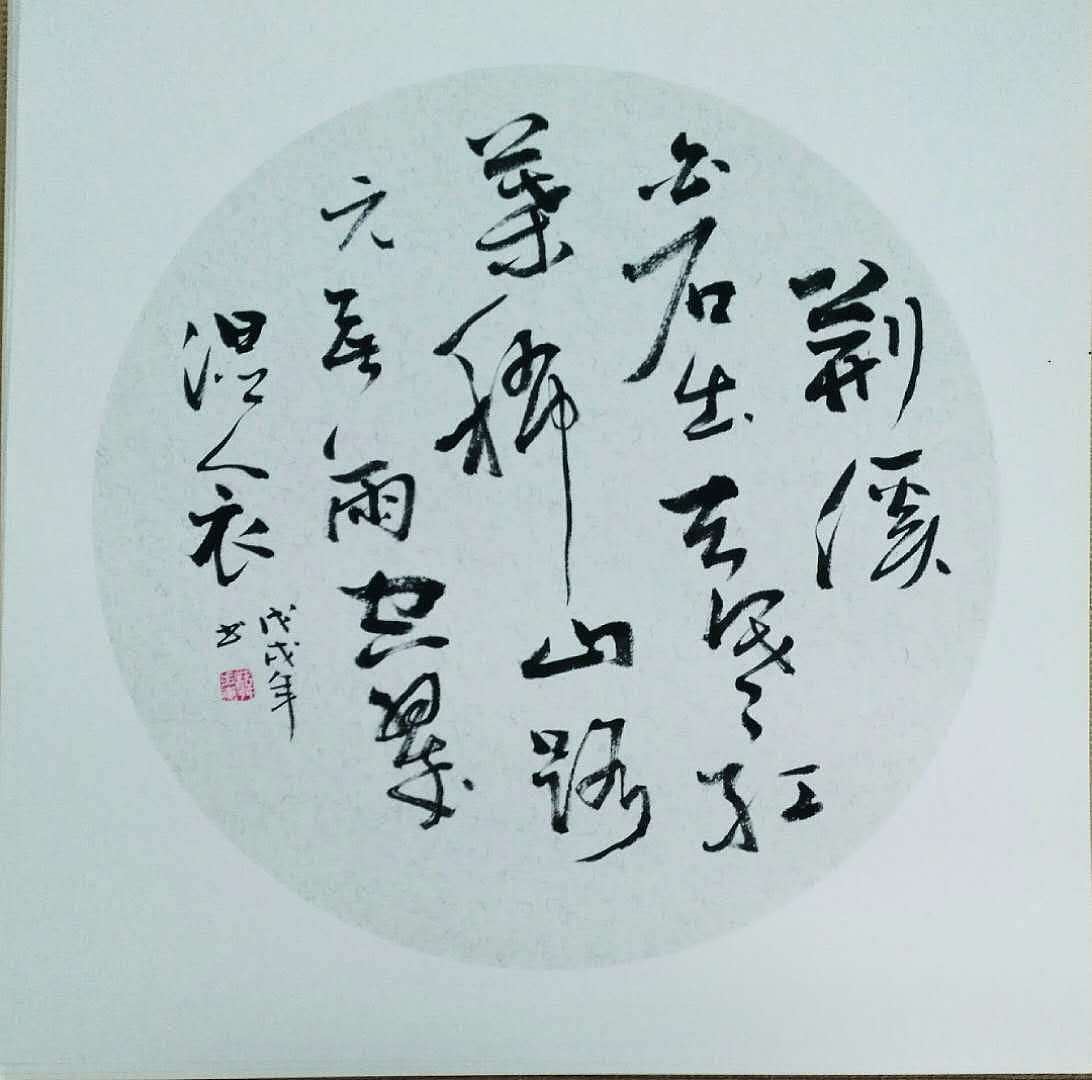 荊溪
白石出天寒红
葉稀山路
元無雨空翠
湿人衣
戊戌年
书